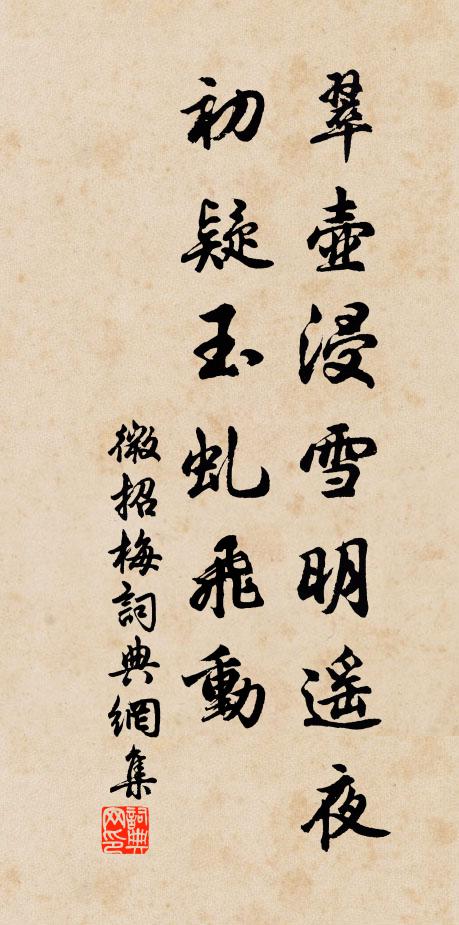 翠壺浸雪明遥夜
初疑玉虬飛動
徵招梅詞典網集
詞典网印